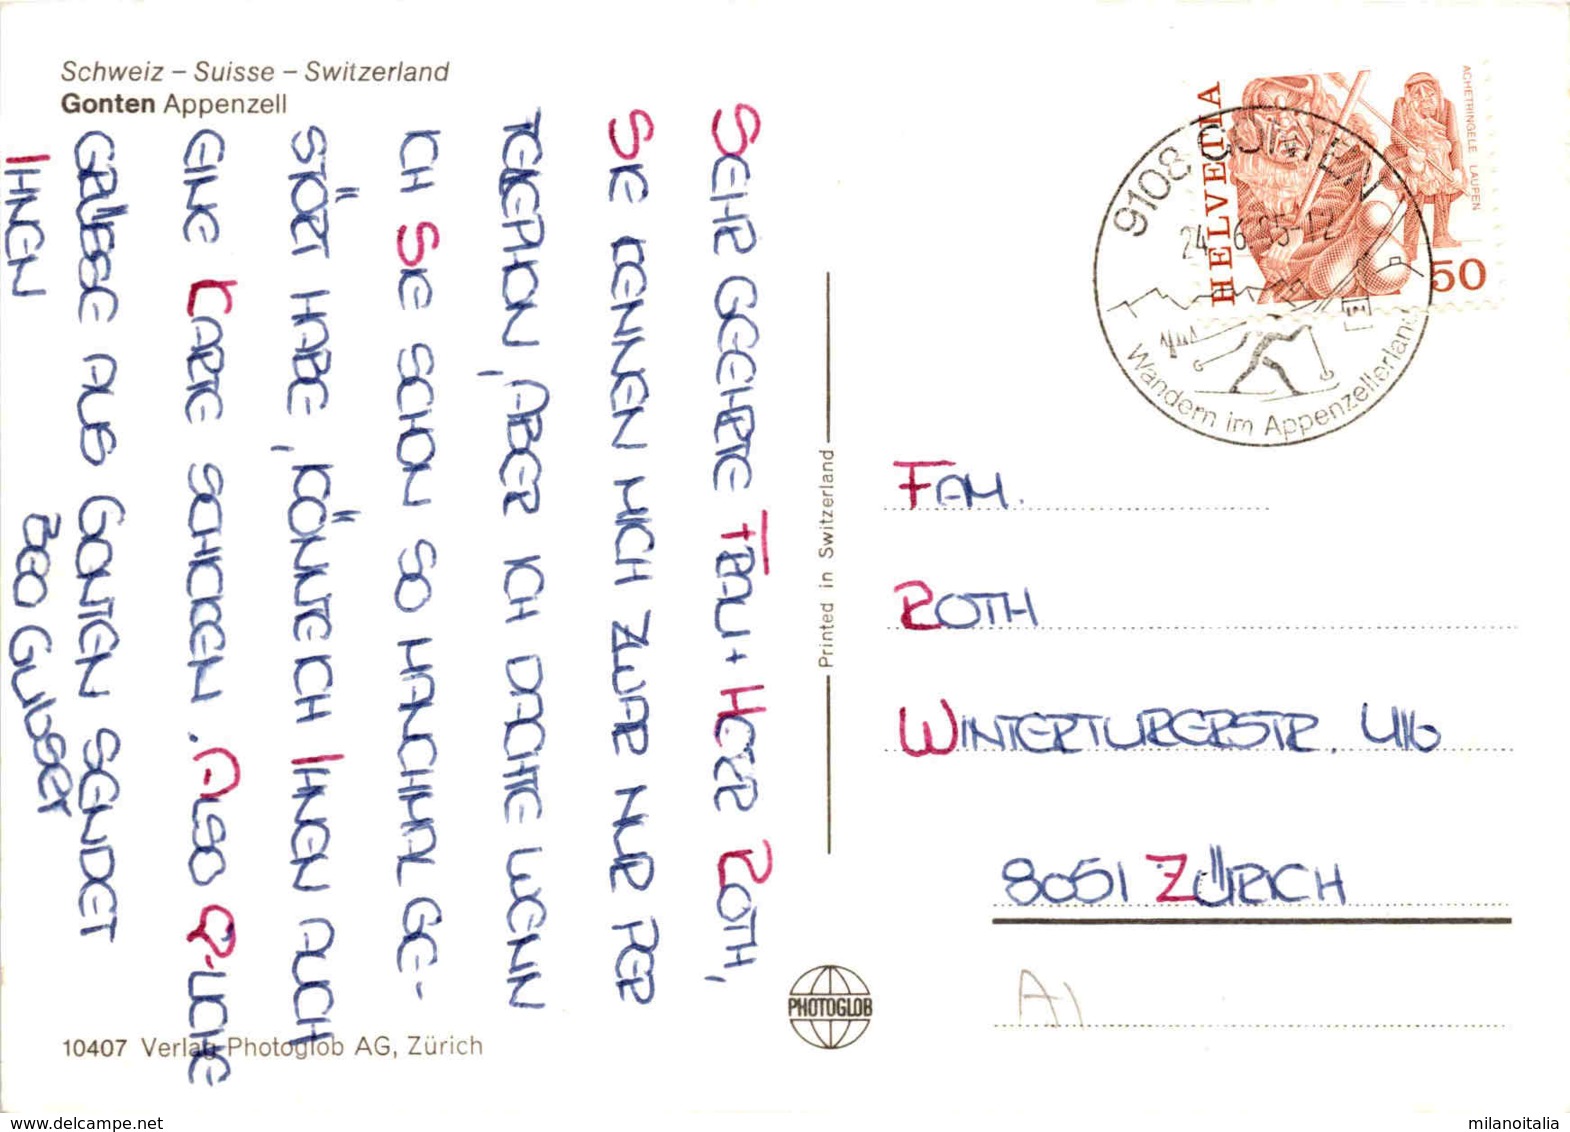 Schweiz – Suisse – Switzerland
Gonten Appenzell
SEHR GEEHRTE FRAU + HERR ROTH,
SIE KENNEN MICH ZWAR NUR PER
TELEPHON, ABER ICH DACHTE WENN
ICH SIE SCHON SO MANCHMAL GE-
STÖRT HABE, KÖNNTE ICH IHNEN AUCH
EINE KARTE SCHICKEN. ALSO
GRÜESSE AUS GONTEN SENDET
IHNEN
Gubser
10407 Verlag Photoglob AG, Zürich
Printed in Switzerland
PHOTOGLOB
HELVETIA
ACHETRINGELE LAUPEN
50
9108 GONTEN
24. 6. 85-12
Wandern im Appenzellerland
FAM.
ROTH
WINTERTURERSTR. 416
8051 ZÜRICH
A1
milanoitalia